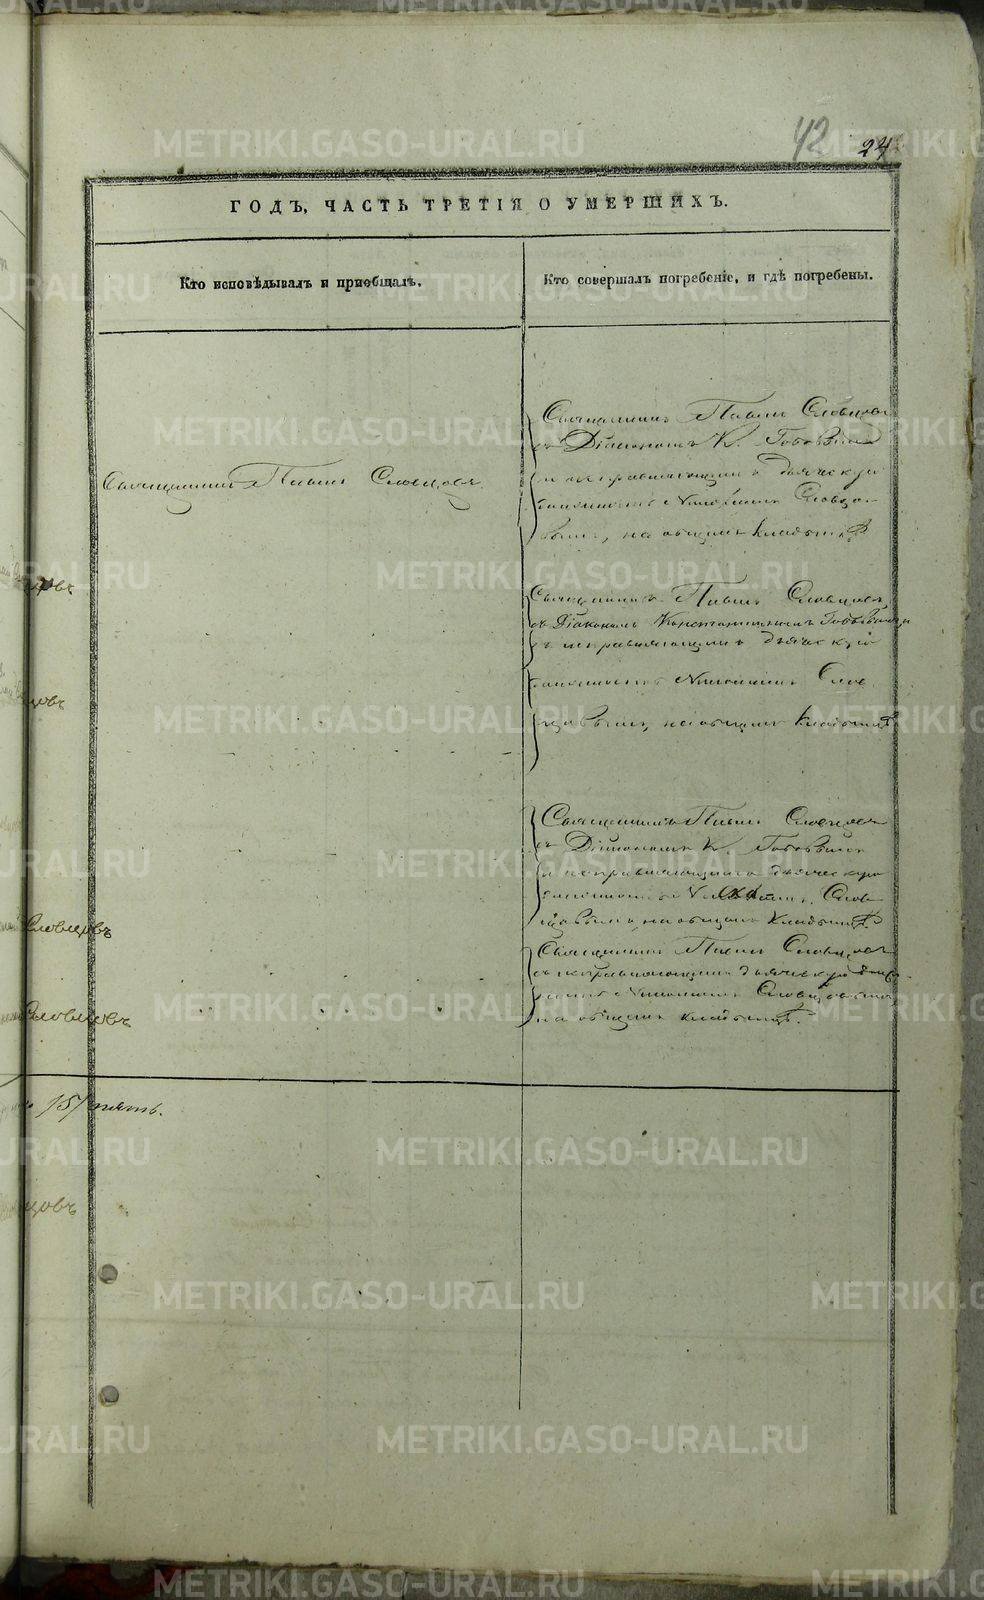 METRIKI.GASO-URAL.RU
42
24
ГОДЪ, ЧАСТЬ ТРЕТІЯ О УМЕРШИХЪ.
Кто исповѣдывалъ и пріобщалъ.
Кто совершалъ погребеніе, и гдѣ погребены.
Священникъ Павелъ Словцовъ.
Священникъ Павелъ Словцовъ
съ Діакономъ К.
и исправляющимъ дьяческую
Словцо-
вымъ, на общемъ кладбищѣ
Священникъ Павелъ Словцовъ
съ Діакономъ Константиномъ
и исправляющимъ дьяческую
Слов
цовымъ, на общемъ кладбищѣ
Священникъ Павелъ Словцовъ
съ Діакономъ К.
и исправляющимъ дьяческую
Слов
цовымъ, на общемъ кладбищѣ.
Священникъ Павелъ Словцовъ
съ исправляющимъ дьяческую
Словцовымъ
на общемъ кладбищѣ.
цовъ
Словцовъ
Словцовъ
/5/ пять.
цовъ